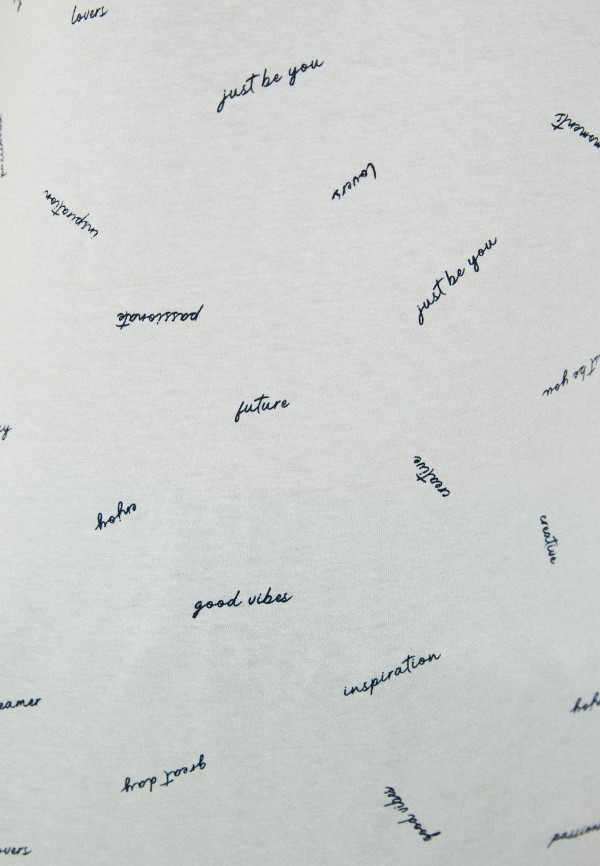 lovers
just be you
moments
lovers
inspiration
just be you
passionate
t be you
future
creative
creative
good vibes
inspiration
eamer
great day
good vibes
overs
passion